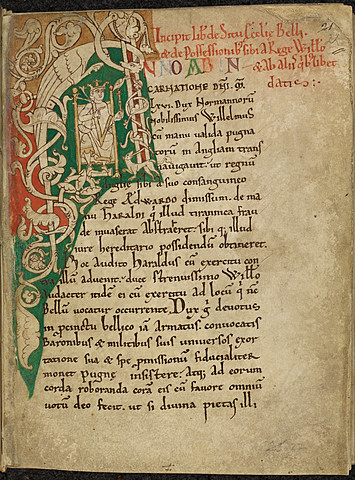 Incipit lib̄ de Situ Ecclie Belli.
& de Possessionib; sibi a Rege Willo
& ab aliis q̄b; libet
datis:.
21
ANNO AB IN
CARNATIONE DN̄I. M̄.
LXVI. Dux Normannorū
Nobilissimus Willelmus
cū manu valida pugna
torū in Angliam trans
nauigauit. ut regnū
Angliæ sibi a suo consanguineo
Rege EdWARDO dimissum. de ma
nu HARALDI q̇ illud tirannica frau
de inuaserat abstraheret. sibi q; illud
iure hereditario possidendū obtineret.
Hoc Audito Haraldus cū exercitu con
tra illū aduenit. duce strenuissimo Willo
audacter itidē ei cū exercitu ad locū q̇ n̄c
Bellū vocatur occurrente. Dux ġ deuotus
in peinctu bellico iā Armatus: conuocatis
Baronibus & militibus suis uniuersos exor
tatione sua & spe ꝓmissionū fiducialiter
monet pugne insistere. Atq; ad eorum
corda roboranda corā eis cū fauore omniū
uotū deo fecit. ut si diuina pietas illi